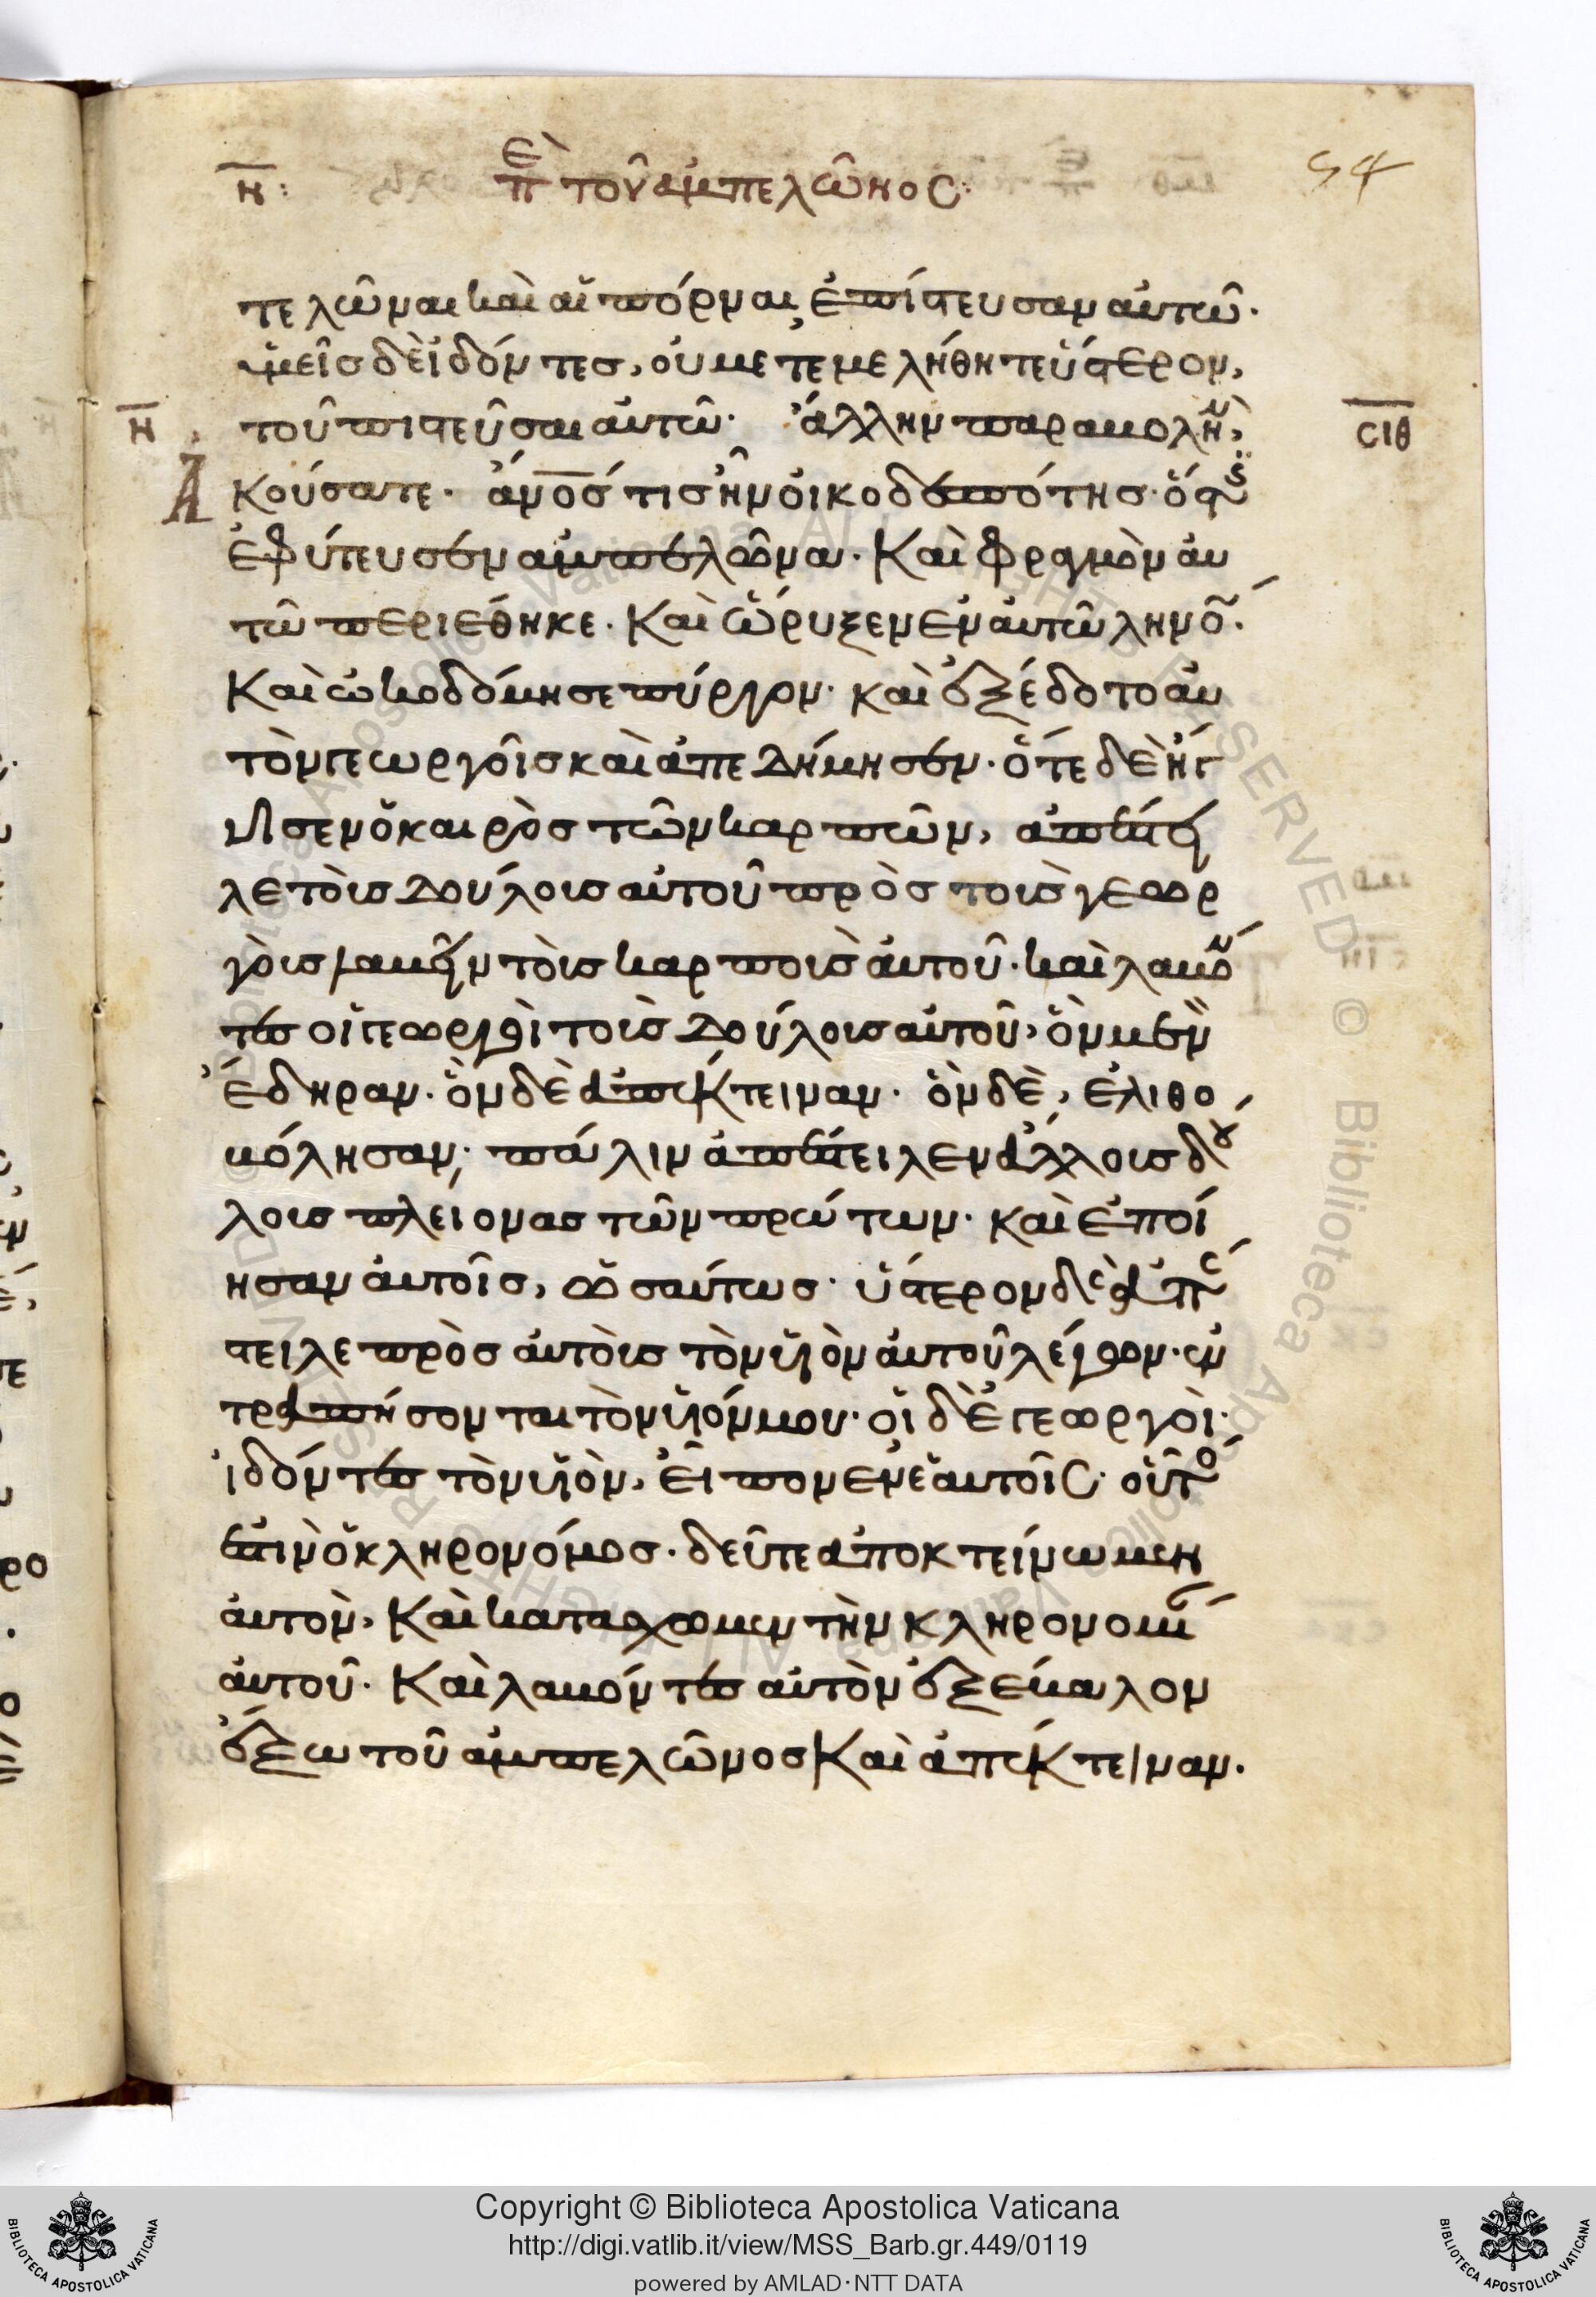 η: ἐπὶ τοῦ ἀμπελῶνος: 54
τελῶναι καὶ αἱ πόρναι ἐπίστευσαν αὐτῶ·
ὑμεῖς δὲ ἰδόντες, οὐ μετεμελήθητε ὕστερον,
η τοῦ πιστεῦσαι αὐτῶ· ἄλλην παραβολὴν, σιθ
Ἀκούσατε· ἄνος τίς ἦν οἰκοδεσπότης· ὅστις
ἐφύτευσεν ἀμπελῶνα· Καὶ φραγμὸν αὐ
τῶ περιέθηκε· Καὶ ὤρυξεν ἐν αὐτῶ ληνόν·
Καὶ ὠκοδόμησε πύργον· καὶ ἐξέδοτο αὐ
τὸν γεωργοῖς καὶ ἀπεδήμησεν· ὅτε δὲ ἤγ
γισεν ὁ καιρὸς τῶν καρπῶν, ἀπέστει
λε τοὺς δούλους αὐτοῦ πρὸς τοὺς γεωρ
γοὺς λαβεῖν τοὺς καρποὺς αὐτοῦ· καὶ λαβόν
τες οἱ γεωργοὶ τοὺς δούλους αὐτοῦ, ὃν μὲν
ἔδηραν· ὃν δὲ ἀπέκτειναν· ὃν δὲ, ἐλιθο
βόλησαν· πάλιν ἀπέστειλεν ἄλλους δού
λους πλείονας τῶν πρώτων· καὶ ἐποί
ησαν αὐτοῖς, ὡσαύτως· ὕστερον δὲ ἀπέ
στειλε πρὸς αὐτοὺς τὸν υἱὸν αὐτοῦ λέγων· ἐν
τραπήσονται τὸν υἱόν μου· οἱ δὲ γεωργοὶ·
ἰδόντες τὸν υἱὸν, εἶπον ἐν ἑαυτοῖς· οὗτός
ἐστιν ὁ κληρονόμος· δεῦτε ἀποκτείνωμεν
αὐτὸν, Καὶ κατασχωμεν τὴν κληρονομίαν
αὐτοῦ· Καὶ λαβόντες αὐτὸν ἐξέβαλον
ἔξω τοῦ ἀμπελῶνος Καὶ ἀπέκτειναν·
Copyright © Biblioteca Apostolica Vaticana
http://digi.vatlib.it/view/MSS_Barb.gr.449/0119
powered by AMLAD·NTT DATA